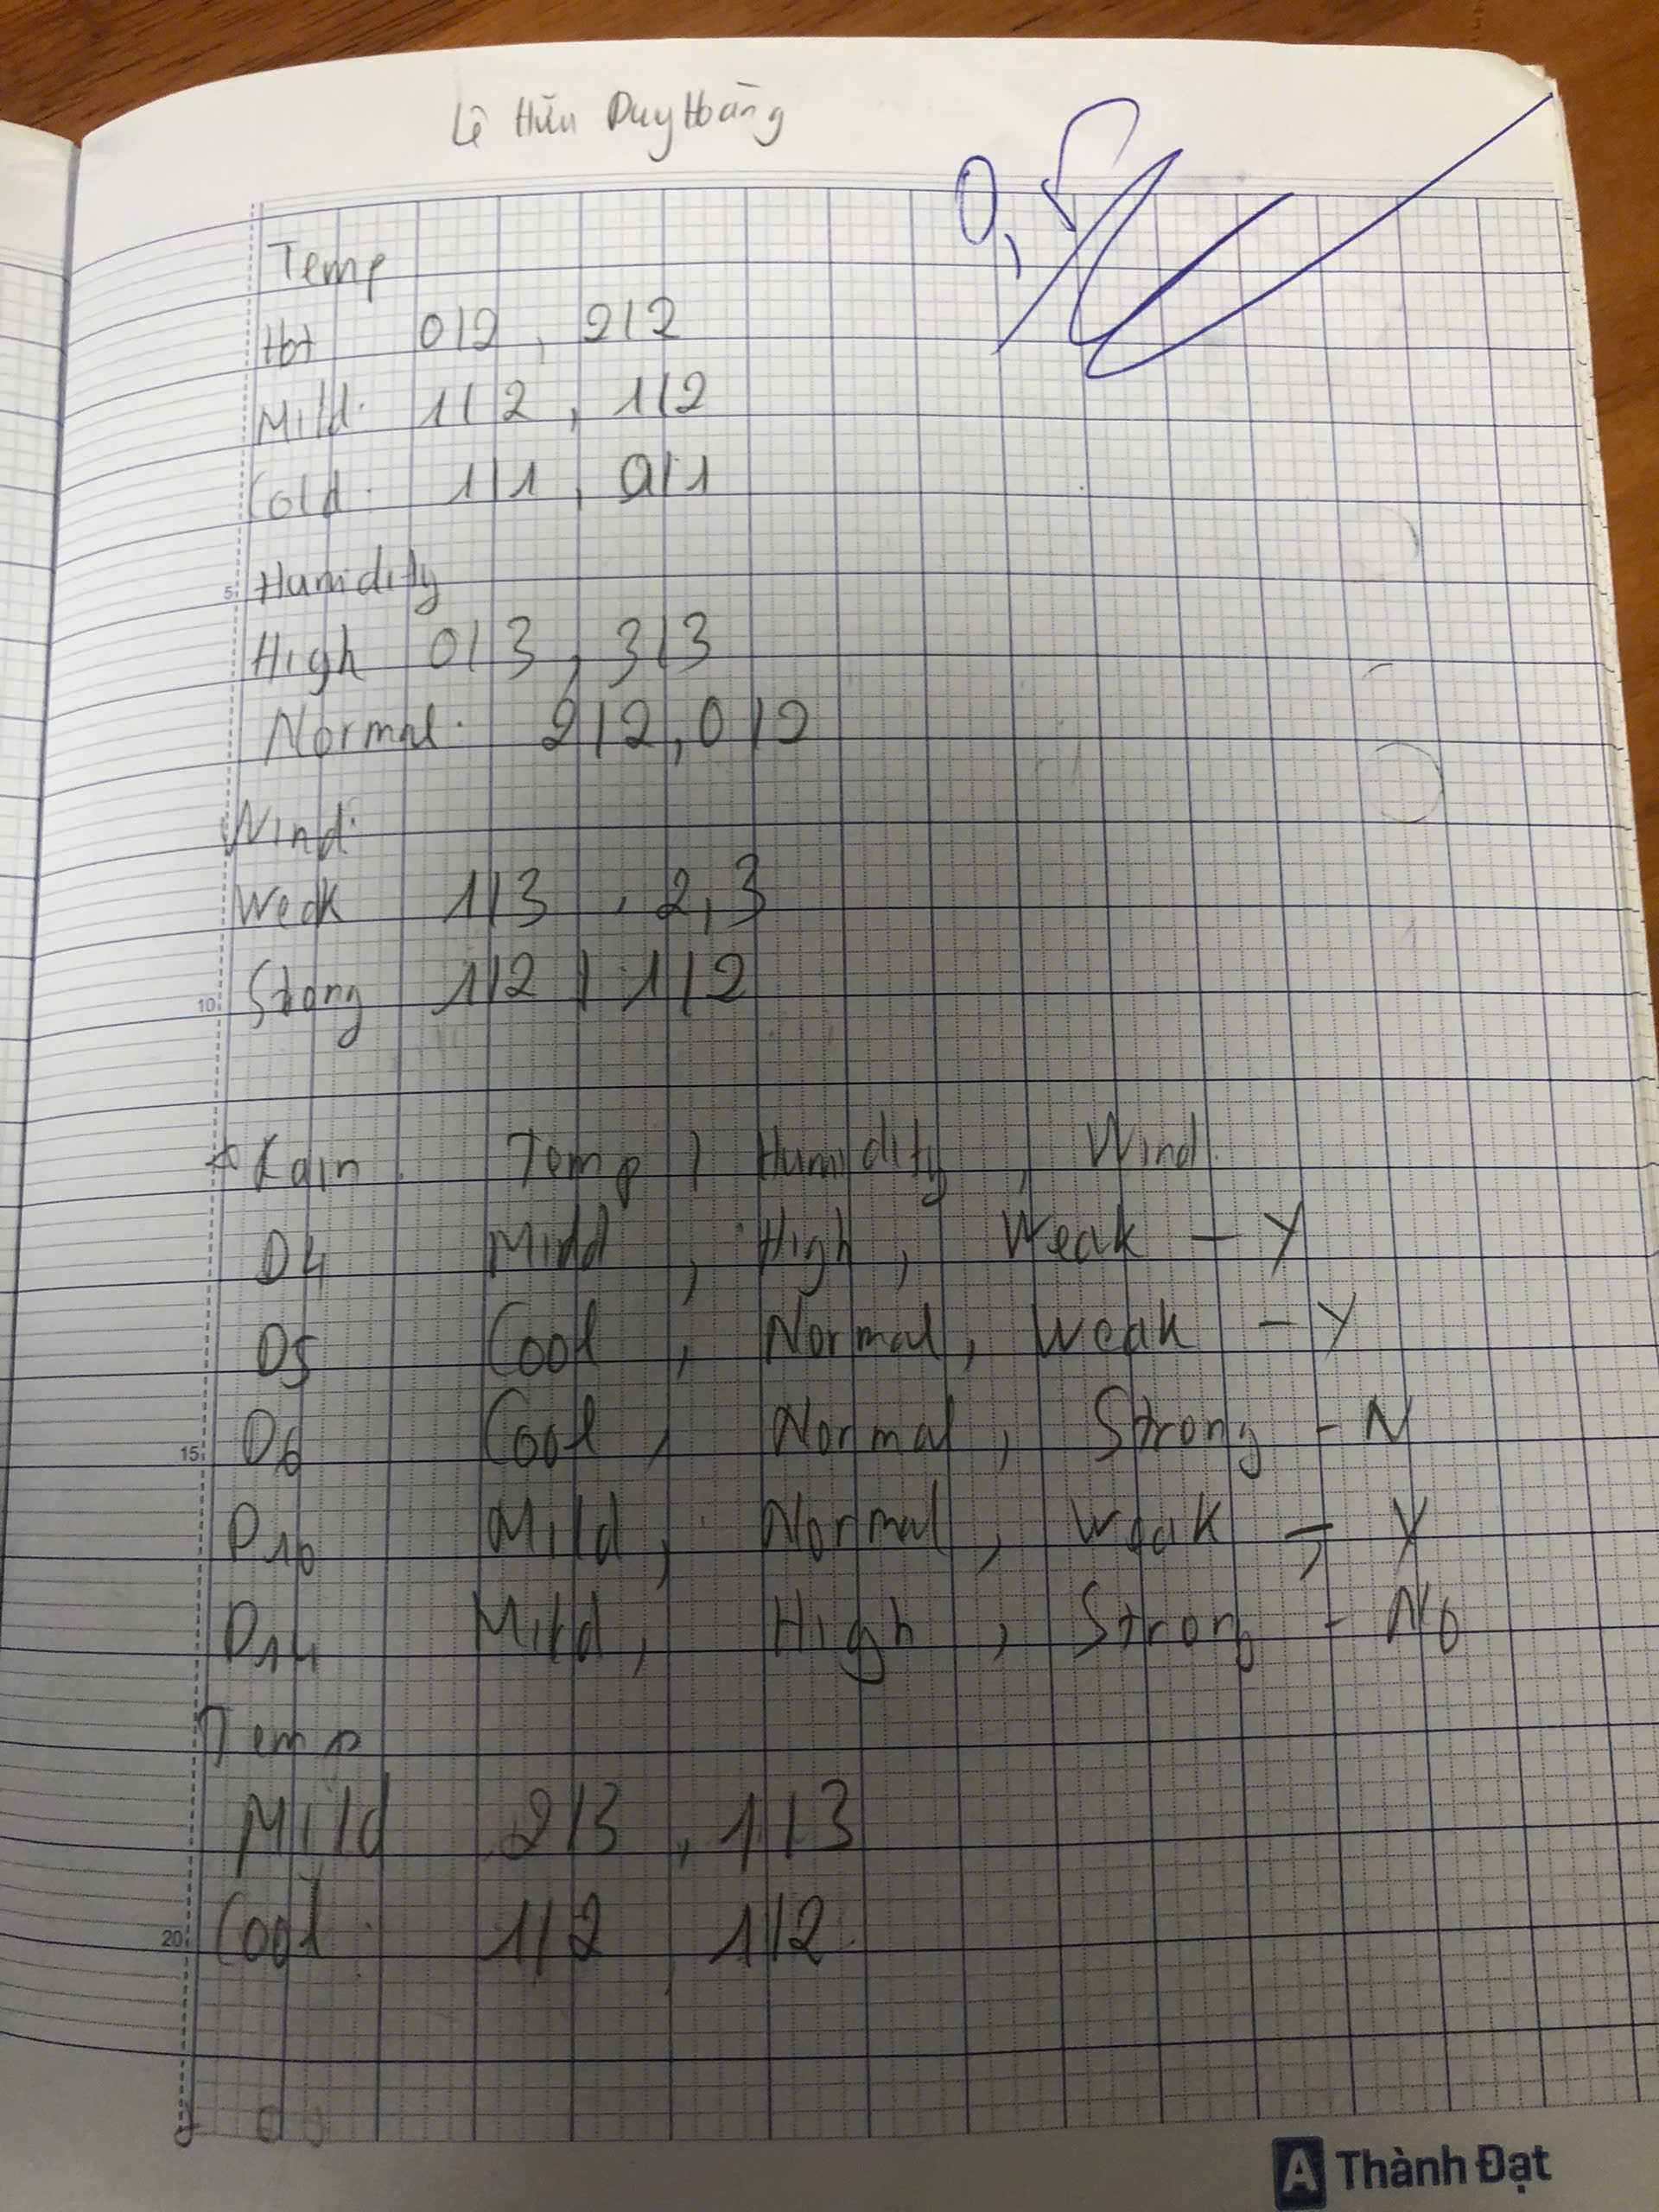 Lê Hữu Duy Hoàng
0,5
Temp
Hot 0/2, 2/2
Mild: 1/2, 1/2
Cold: 1/1, 0/1
5 Humidity
High 0/3, 3/3
Normal: 2/2, 0/2
Wind:
Weak 1/3, 2,3
10 Strong 1/2, 1/2
Rain. Temp, Humidity, Wind.
D4 Mild, High, Weak - Y
D5 Cool, Normal, Weak - Y
15 D6 Cool, Normal, Strong - N
D10 Mild, Normal, Weak - Y
D14 Mild, High, Strong - No
Temp
Mild 2/3, 1/3
20 Cool: 1/2, 1/2.
A Thành Đạt